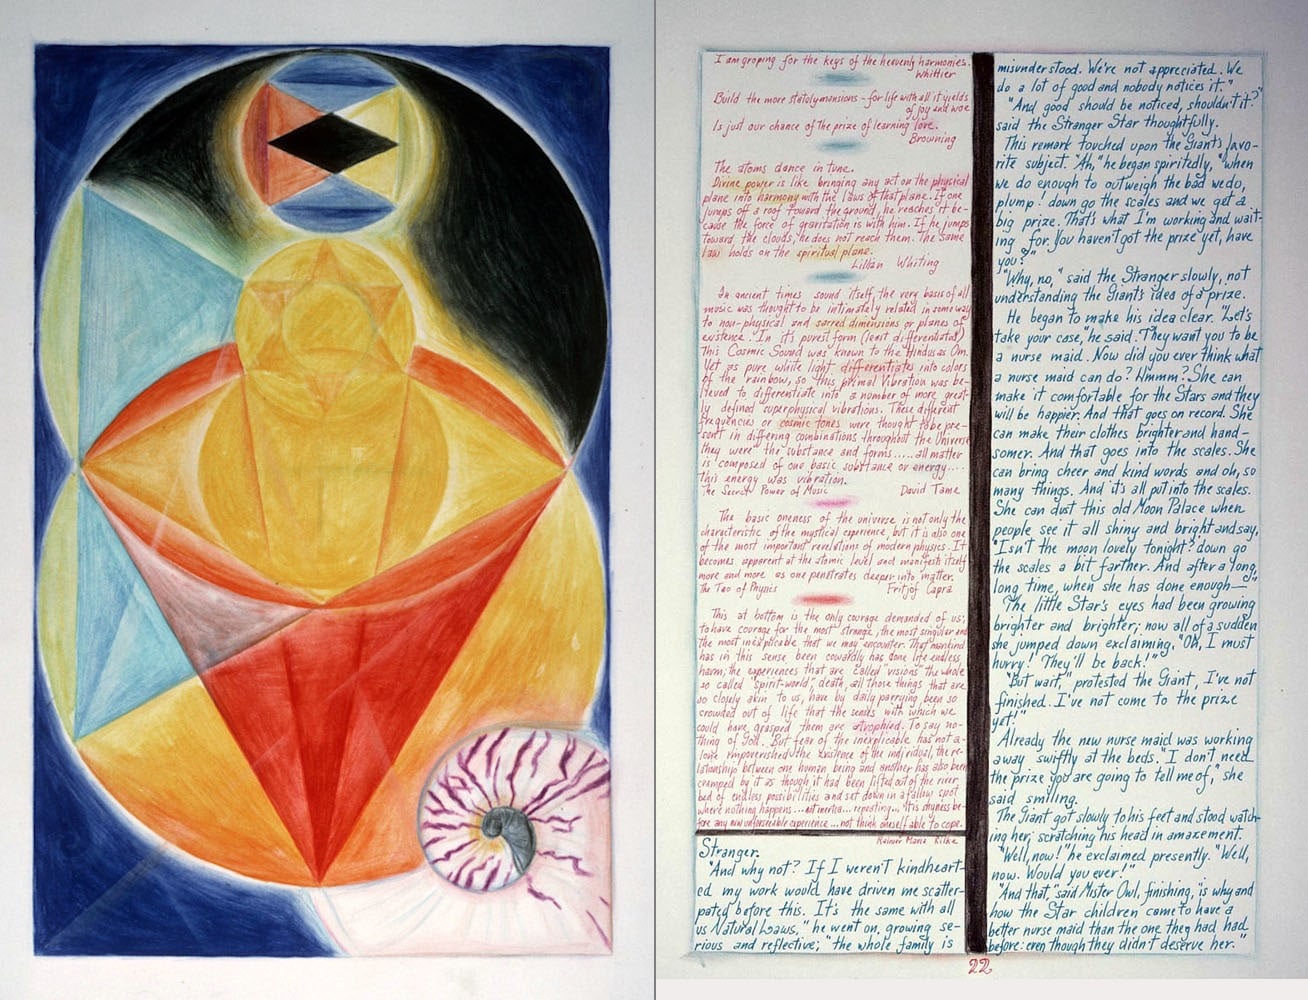 I am groping for the keys of the heavenly harmonies.
Whittier
Build the more stately mansions - for life with all it yields
of joy and woe
Is just our chance of the prize of learning love.
Browning
The atoms dance in tune.
Divine power is like bringing any act on the physical
plane into harmony with the laws of that plane. If one
jumps off a roof toward the ground, he reaches it be-
cause the force of gravitation is with him. If he jumps
toward the clouds, he does not reach them. The same
law holds on the spiritual plane.
Lillian Whiting
In ancient times sound itself, the very basis of all
music was thought to be intimately related in some way
to non-physical and sacred dimensions or planes of
existence. In it's purest form (least differentiated)
This Cosmic Sound was known to the Hindus as Om.
Yet as pure white light differentiates into colors
of the rainbow, so this primal Vibration was be-
lieved to differentiate into a number of more great-
ly defined superphysical vibrations. These different
frequencies or cosmic tones were thought to be pre-
sent in differing combinations throughout the Universe
they were the substance and forms.....all matter
is composed of one basic substance or energy....
this energy was vibration.
The Secret Power of Music David Tame
The basic oneness of the universe is not only the
characteristic of the mystical experience, but it is also one
of the most important revelations of modern physics. It
becomes apparent at the atomic level and manifest itself
more and more as one penetrates deeper into matter.
The Tao of Physics Fritjof Capra
This at bottom is the only courage demanded of us;
to have courage for the most strange, the most singular and
the most inexplicable that we may encounter. That mankind
has in this sense been cowardly has done life endless
harm; the experiences that are called "visions" the whole
so called "spirit-world," death, all those things that are
so closely akin to us, have by daily parrying been so
crowded out of life that the senses with which we
could have grasped them are atrophied. To say no-
thing of God. But fear of the inexplicable has not a-
lone impoverished the existence of the individual, the re-
lationship between one human being and another has also been
cramped by it as though it had been lifted out of the river
bed of endless possibilities and set down in a fallow spot
where nothing happens....not inertia...repeating...it is shyness be-
fore any new unforseeable experience...not think oneself able to cope.
Rainer Maria Rilke
Stranger.
"And why not? If I weren't kindheart-
ed my work would have driven me scatter-
pated before this. It's the same with all
us Natural Laws," he went on, growing se-
rious and reflective; "the whole family is
misunderstood. We're not appreciated. We
do a lot of good and nobody notices it."
"And good should be noticed, shouldn't it?"
said the Stranger Star thoughtfully.
This remark touched upon the Giant's favo-
rite subject. "Ah," he began spiritedly, "when
we do enough to outweigh the bad we do,
plump! down go the scales and we get a
big prize. That's what I'm working and wait-
ing for. You haven't got the prize yet, have
you?"
"Why, no," said the Stranger slowly, not
understanding the Giant's idea of a prize.
He began to make his idea clear. "Let's
take your case," he said. "They want you to be
a nurse maid. Now did you ever think what
a nurse maid can do? Hmmm? She can
make it comfortable for the Stars and they
will be happier. And that goes on record. She
can make their clothes brighter and hand-
somer. And that goes into the scales. She
can bring cheer and kind words and oh, so
many things. And it's all put into the scales.
She can dust this old Moon Palace when
people see it all shiny and bright and say,
"Isn't the moon lovely tonight?" down go
the scales a bit farther. And after a long,
long time, when she has done enough—"
The little Star's eyes had been growing
brighter and brighter; now all of a sudden
she jumped down exclaiming, "Oh, I must
hurry! They'll be back!"
"But wait," protested the Giant, I've not
finished. I've not come to the prize
yet!"
Already the new nurse maid was working
away swiftly at the beds. "I don't need
the prize you are going to tell me of," she
said smiling.
The Giant got slowly to his feet and stood watch-
ing her, scratching his head in amazement.
"Well, now!" he exclaimed presently. "Well,
now. Would you ever!"
"And that," said Mister Owl, finishing, "is why and
how the Star children came to have a
better nurse maid than the one they had had
before: even though they didn't deserve her."
22